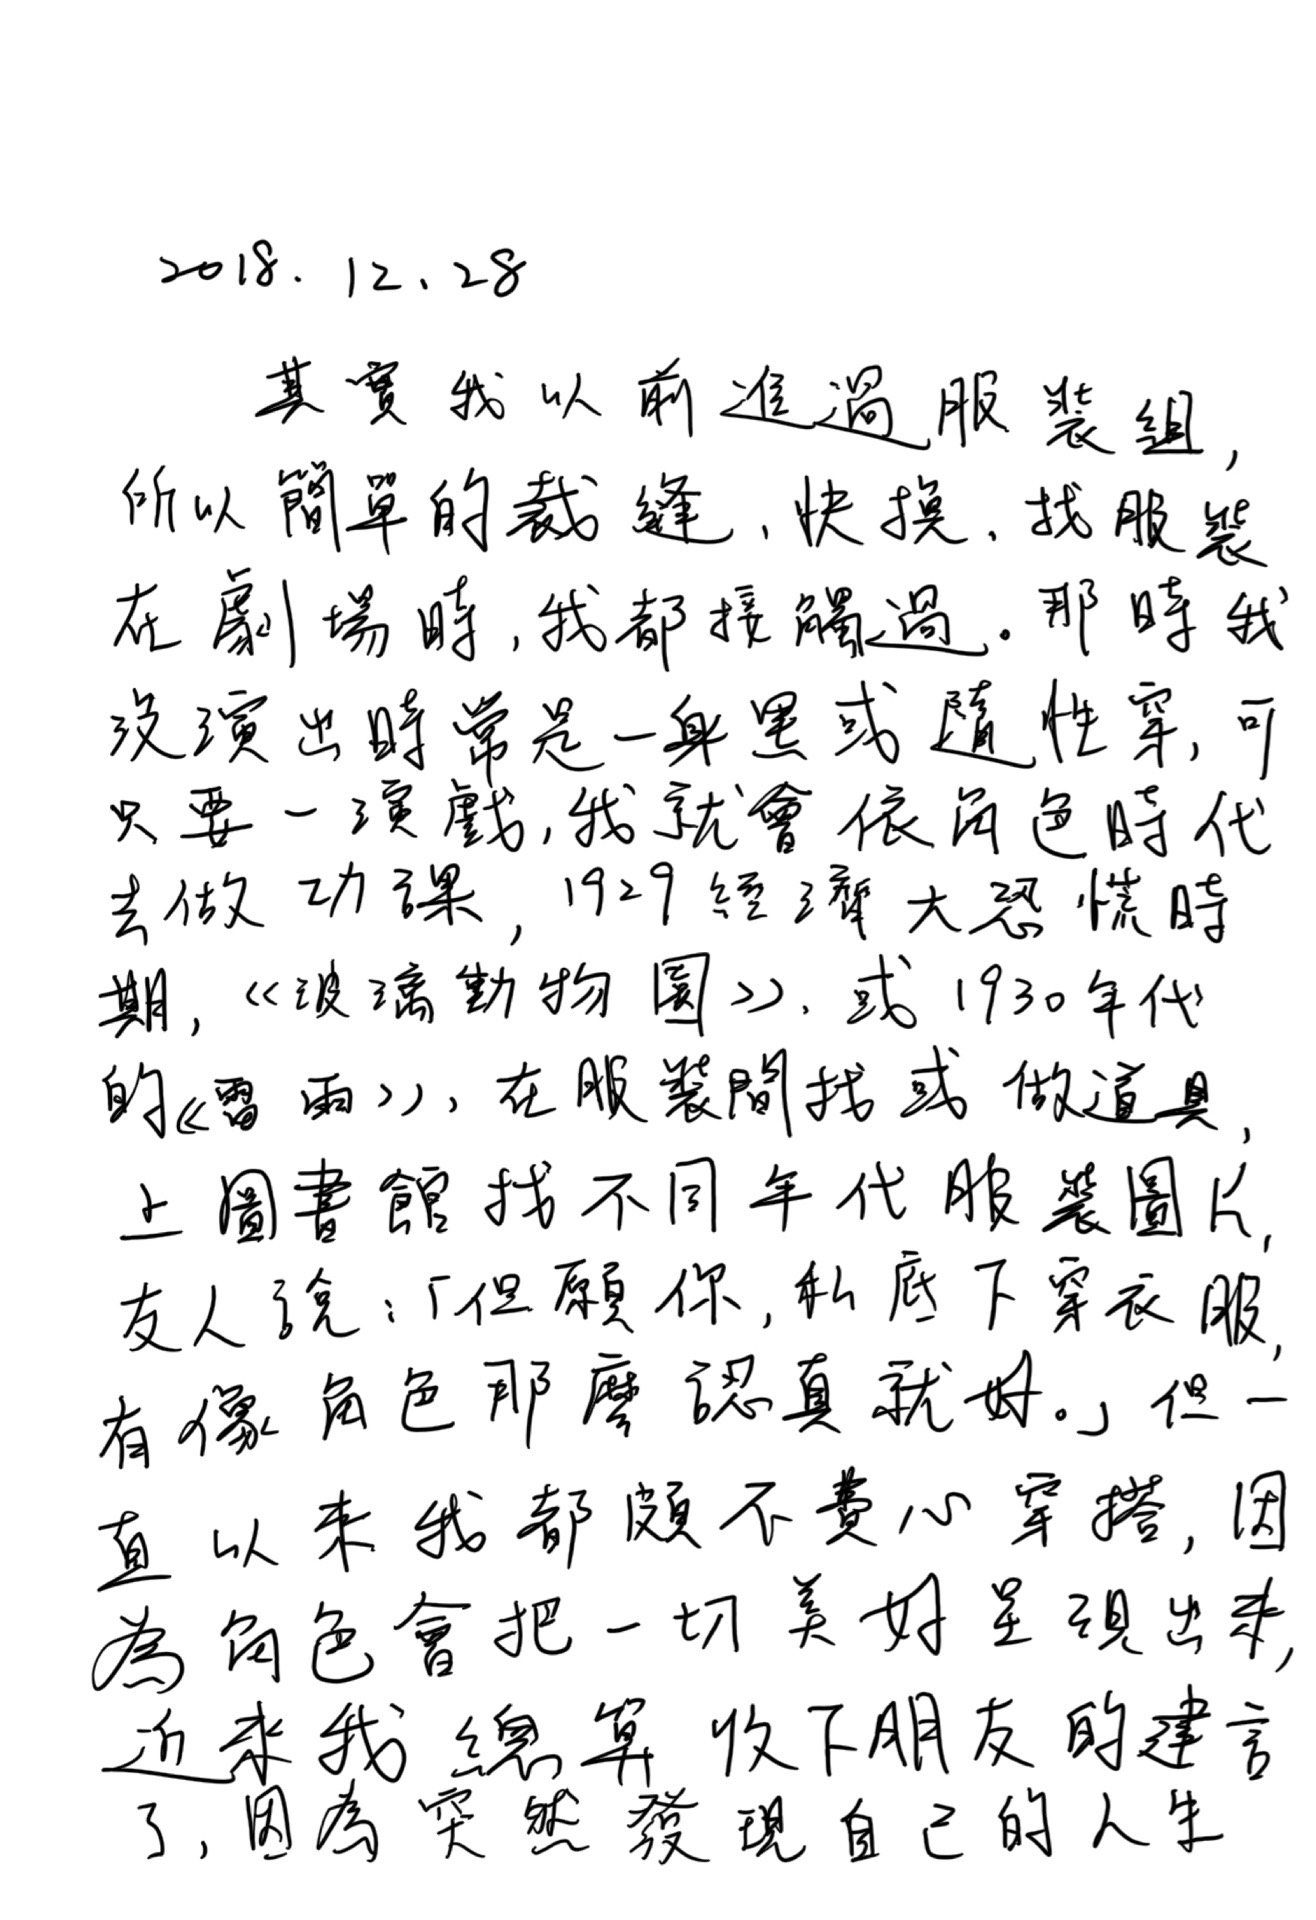 2018.12.28
其實我以前進過服裝組,
所以簡單的裁縫、快換、找服裝
在劇場時,我都接觸過。那時我
沒演出時常是一身黑或隨性穿,可
只要一演戲,我就會依角色時代
去做功課,1929經濟大恐慌時
期,《玻璃動物園》、或1930年代
的《雷雨》、在服裝間找或做道具,
上圖書館找不同年代服裝圖片,
友人說:「但願你,私底下穿衣服,
有像角色那麼認真就好。」但一
直以來我都頗不費心穿搭,因
為角色會把一切美好呈現出來,
近來我總算收下朋友的建言
了,因為突然發現自己的人生